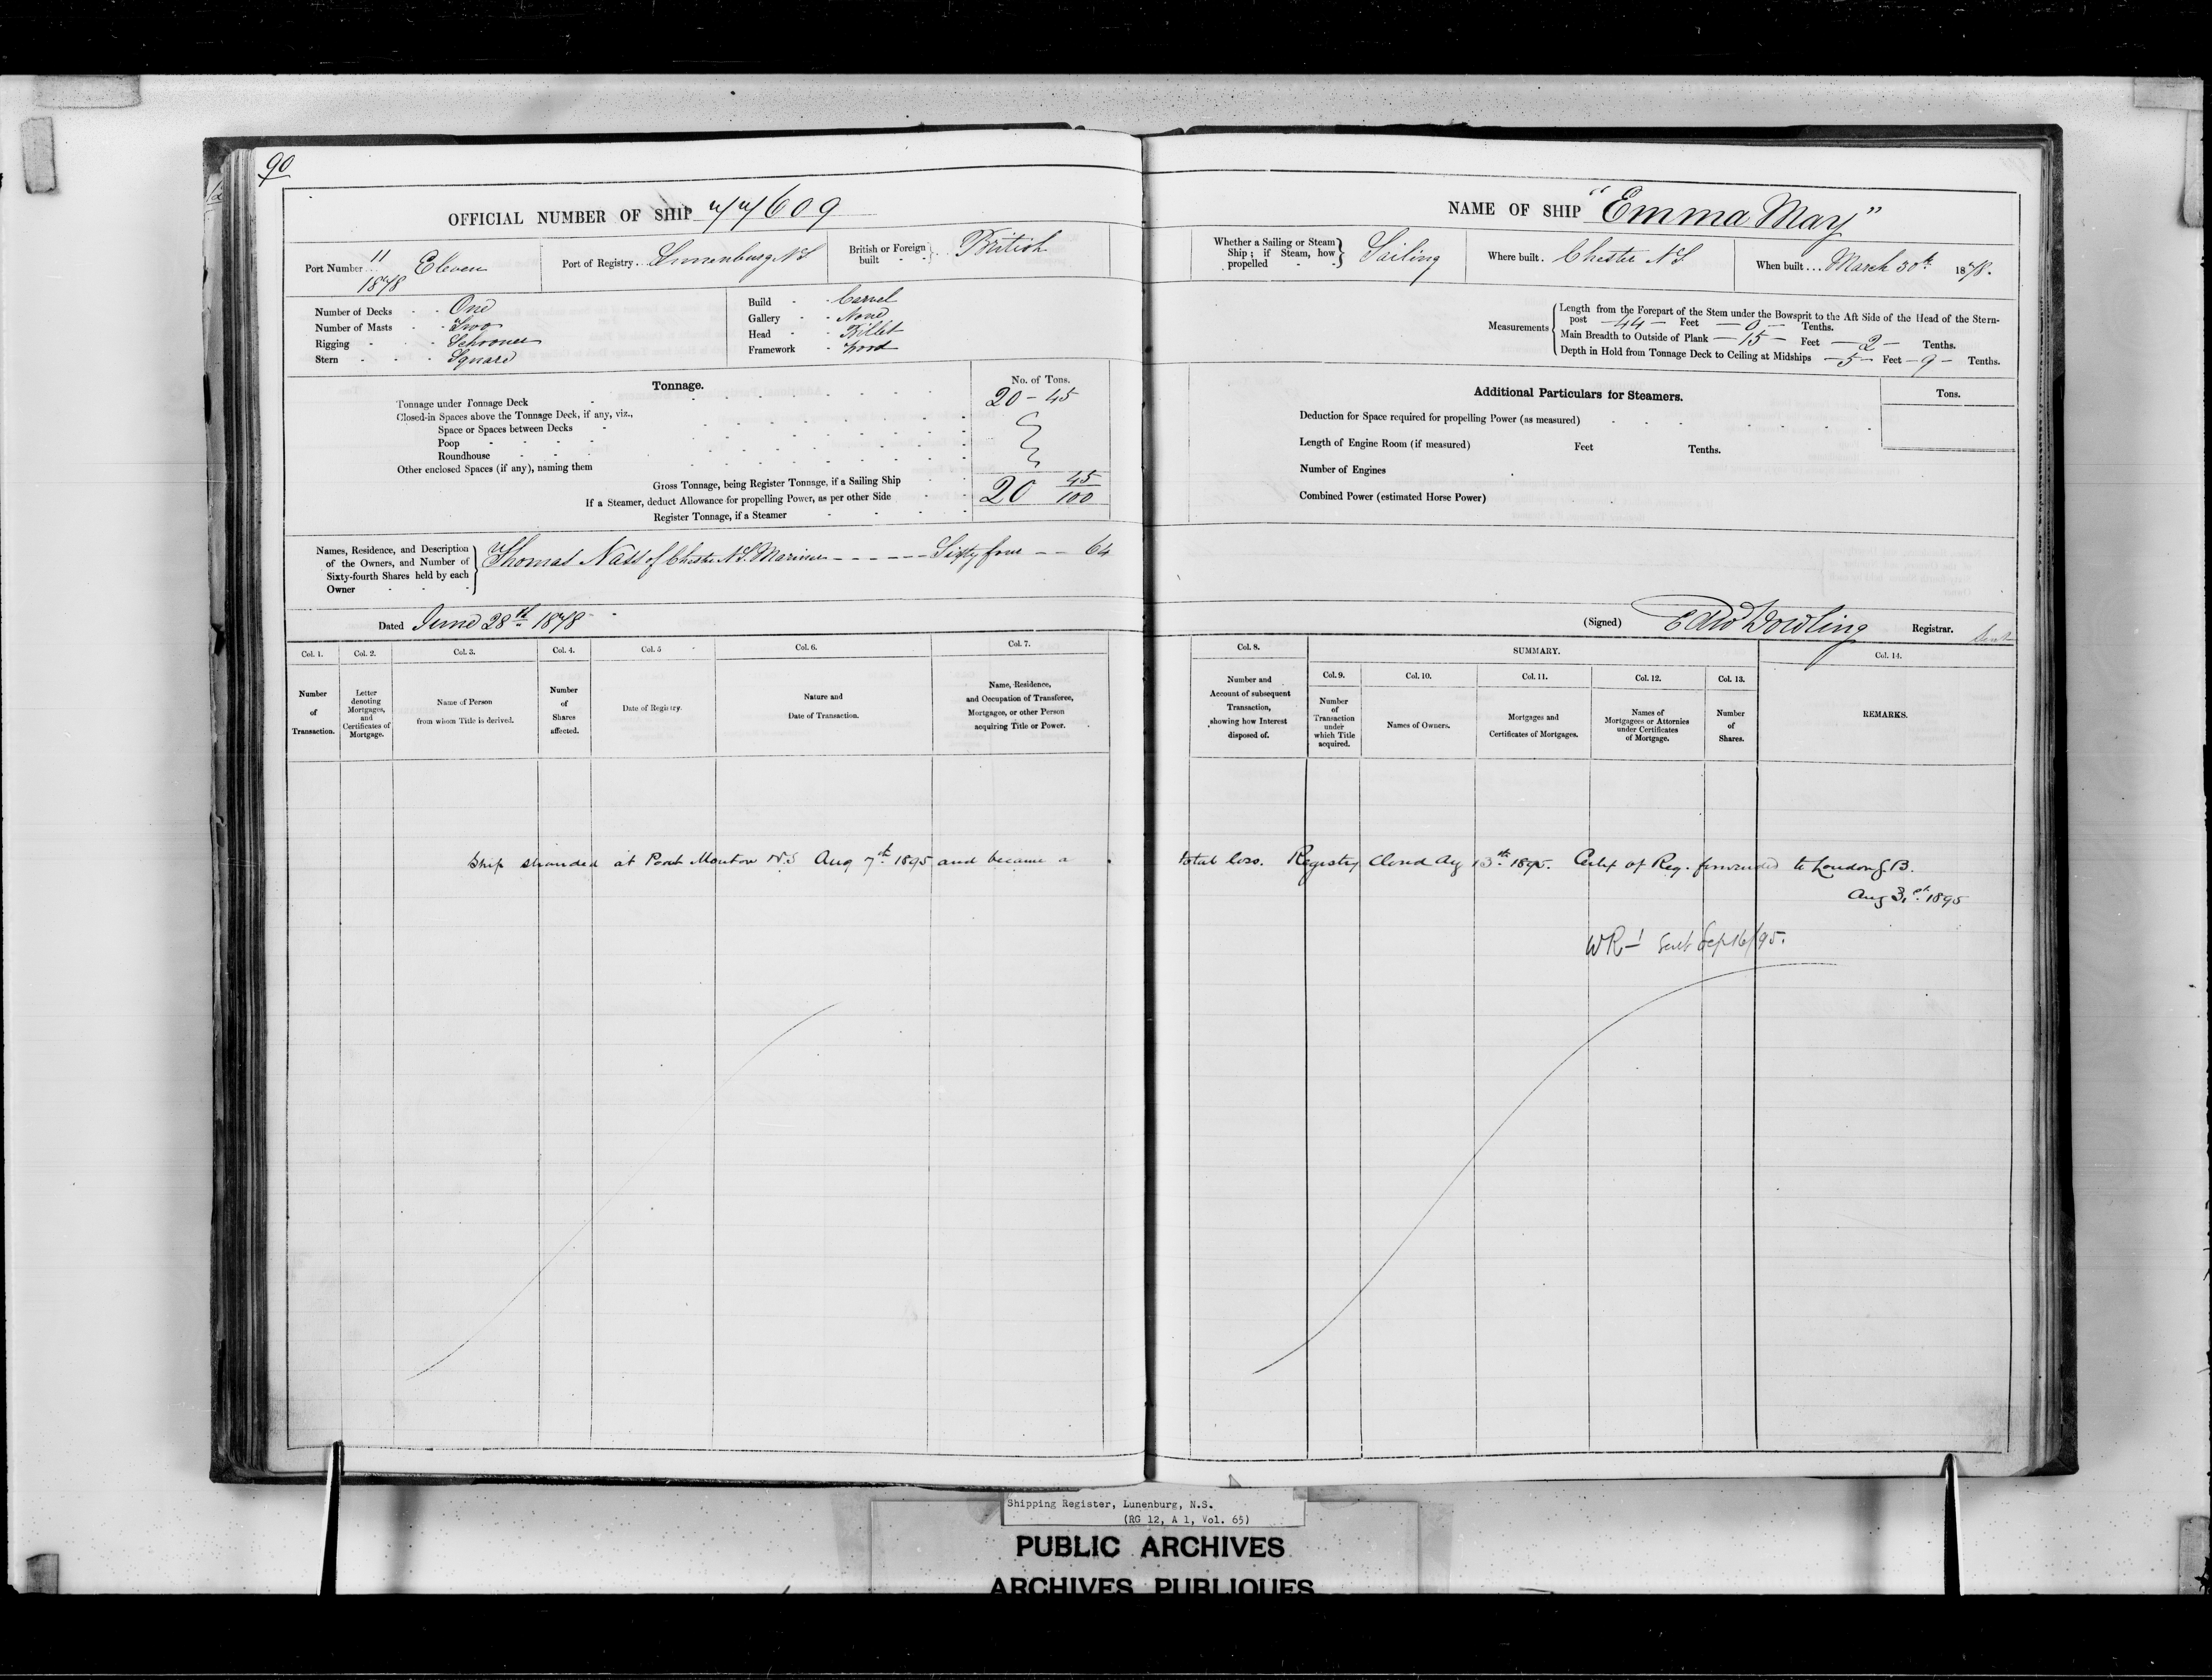 90
OFFICIAL NUMBER OF SHIP 77609
Port Number 11/1878 Eleven
Port of Registry Lunenburg N.S.
British or Foreign built British
Number of Decks - - One
Number of Masts - - Two
Rigging - - - Schooner
Stern - - - Square
Build - - Carvel
Gallery - - None
Head - - Billet
Framework - Wood
Tonnage.
No. of Tons.
Tonnage under Tonnage Deck 20 - 45
Closed-in Spaces above the Tonnage Deck, if any, viz.,
Space or Spaces between Decks
Poop
Roundhouse
Other enclosed Spaces (if any), naming them
Gross Tonnage, being Register Tonnage, if a Sailing Ship
If a Steamer, deduct Allowance for propelling Power, as per other Side
20 45/100
Register Tonnage, if a Steamer
Names, Residence, and Description of the Owners, and Number of Sixty-fourth Shares held by each Owner
Thomas Nass of Chester N.S. Mariner - - - - - - Sixty four - - 64
Dated June 28th 1878
Col. 1. Number of Transaction.
Col. 2. Letter denoting Mortgages, and Certificates of Mortgage.
Col. 3. Name of Person from whom Title is derived.
Col. 4. Number of Shares affected.
Col. 5 Date of Registry.
Col. 6. Nature and Date of Transaction.
Col. 7. Name, Residence, and Occupation of Transferee, Mortgagee, or other Person acquiring Title or Power.
Ship stranded at Port Mouton N.S Aug 7th 1895 and became a
NAME OF SHIP "Emma May"
Whether a Sailing or Steam Ship; if Steam, how propelled Sailing
Where built. Chester N.S.
When built... March 30th 1878.
Measurements
Length from the Forepart of the Stem under the Bowsprit to the Aft Side of the Head of the Stern-
post - 44 - Feet - 0 - Tenths.
Main Breadth to Outside of Plank - 15 - Feet - 2 - Tenths.
Depth in Hold from Tonnage Deck to Ceiling at Midships - 5 - Feet - 9 - Tenths.
Additional Particulars for Steamers.
Tons.
Deduction for Space required for propelling Power (as measured)
Length of Engine Room (if measured) Feet Tenths.
Number of Engines
Combined Power (estimated Horse Power)
(Signed) Edw Dowling Registrar.
Sent
Col. 8. Number and Account of subsequent Transaction, showing how Interest disposed of.
SUMMARY.
Col. 9. Number of Transaction under which Title acquired.
Col. 10. Names of Owners.
Col. 11. Mortgages and Certificates of Mortgages.
Col. 12. Names of Mortgagees or Attornies under Certificates of Mortgage.
Col. 13. Number of Shares.
Col. 14. REMARKS.
total loss. Registry closed Aug 13th 1895. Certif of Reg. forwarded to London G.B.
Aug 31st 1895
WR-1 Sent Sep 16/95.
Shipping Register, Lunenburg, N.S.
(RG 12, A 1, Vol. 65)
PUBLIC ARCHIVES
ARCHIVES PUBLIQUES